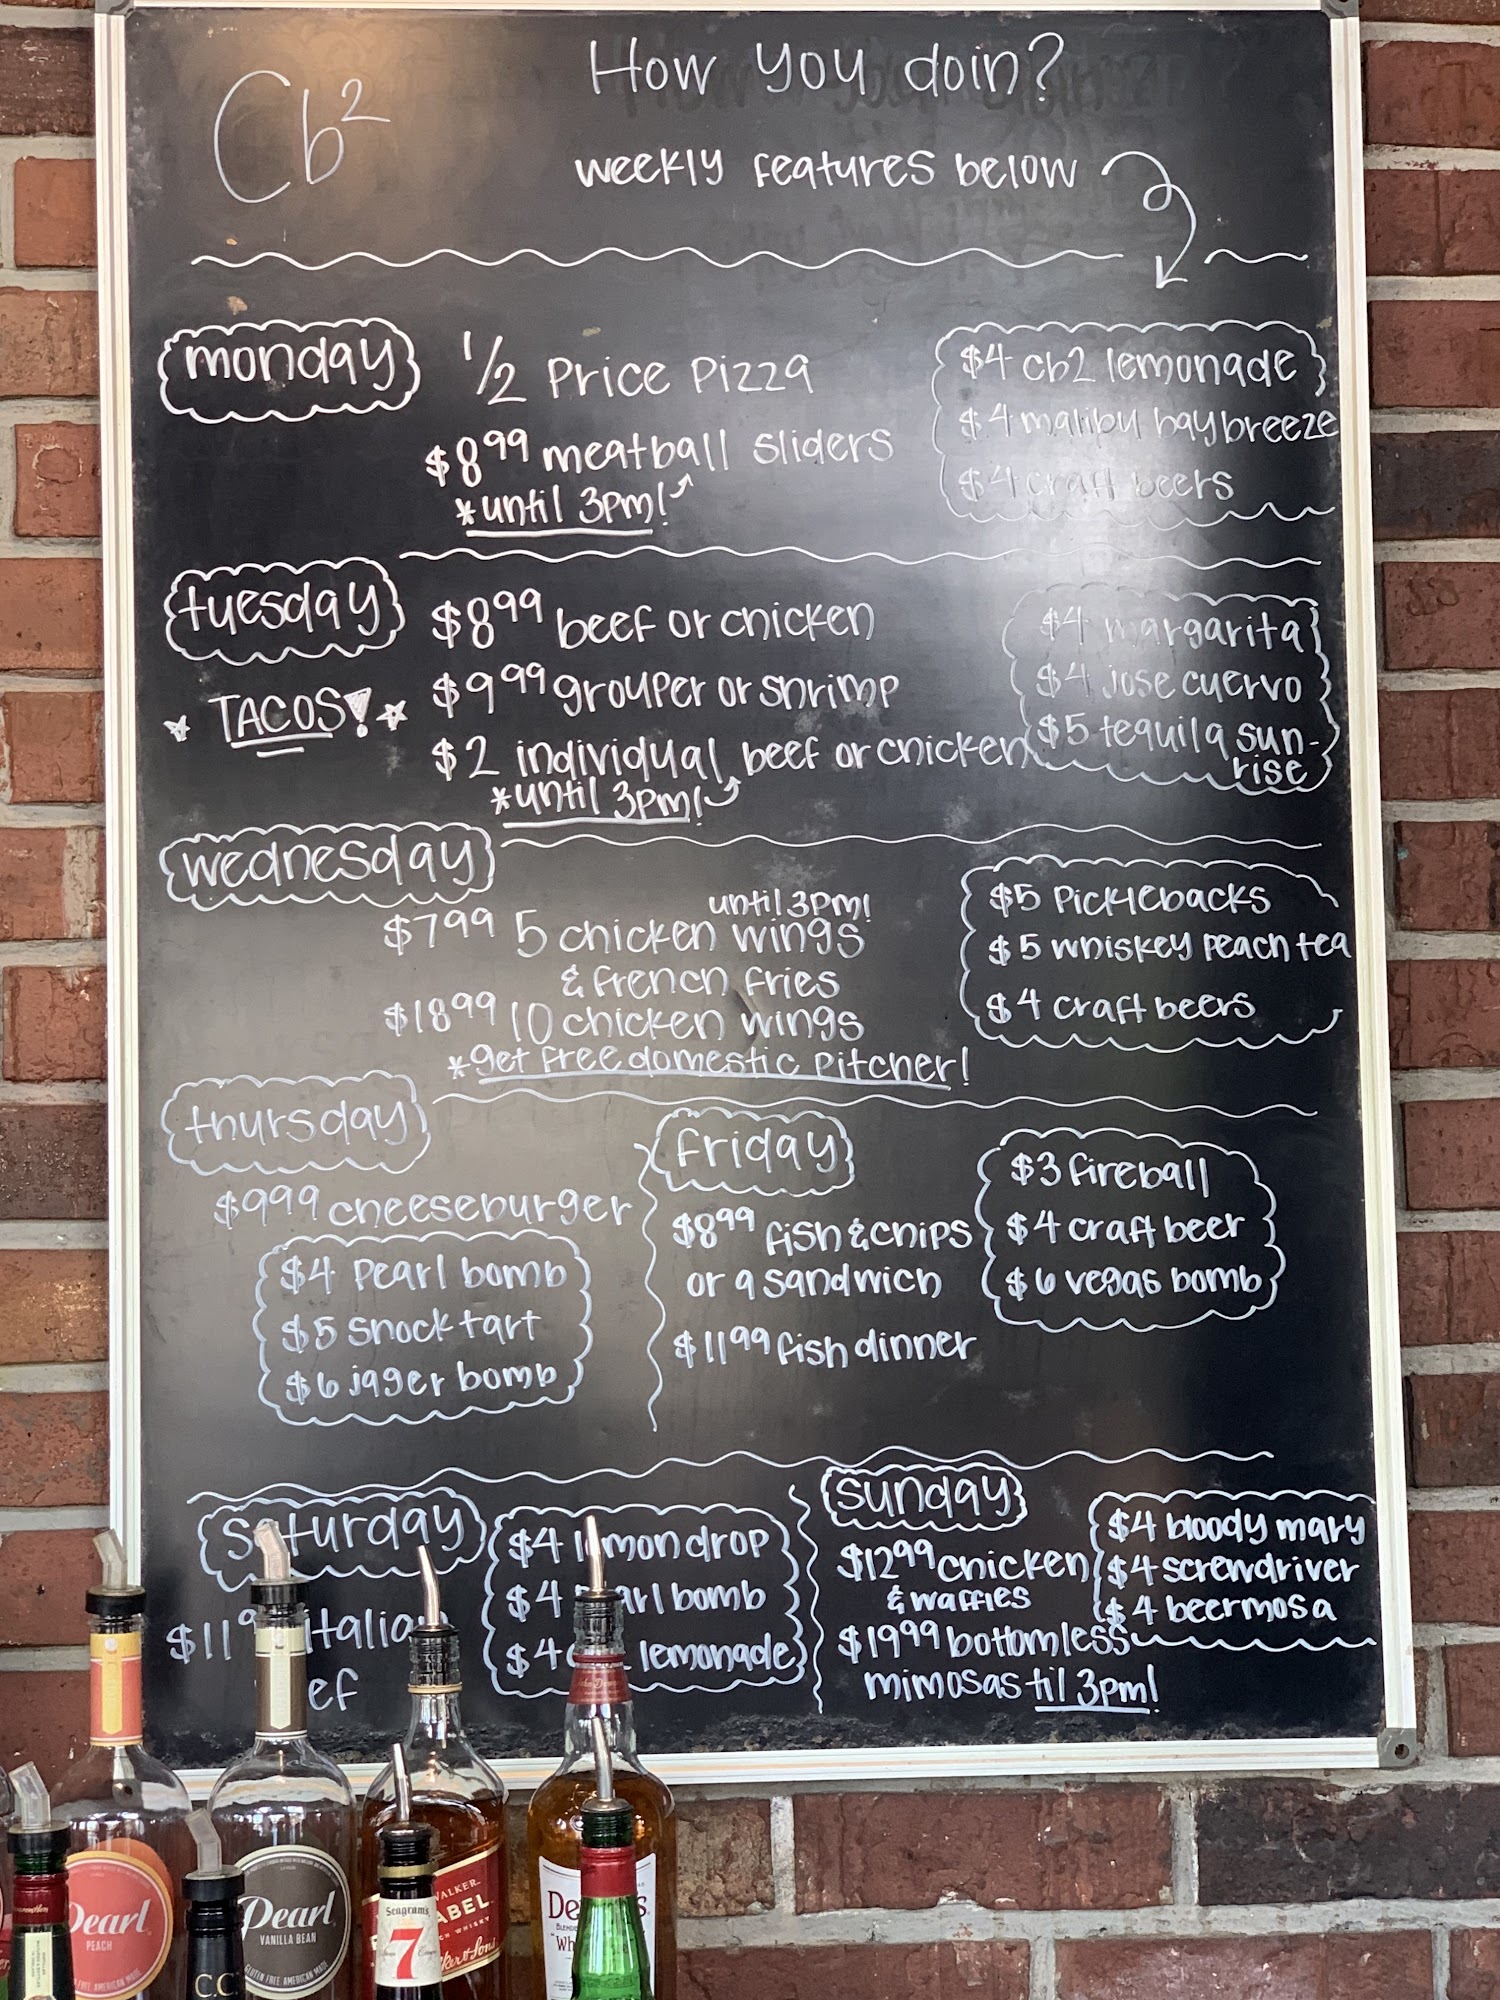 Cb²
How you doin?
weekly features below
monday
1/2 Price Pizza
$8.99 meatball sliders
*until 3pm!
$4 cb2 lemonade
$4 malibu baybreeze
$4 craft beers
tuesday
TACOS!
$8.99 beef or chicken
$9.99 grouper or shrimp
$2 individual beef or chicken
*until 3pm!
$4 margarita
$4 jose cuervo
$5 tequila sun-
rise
wednesday
until 3pm!
$7.99 5 chicken wings
& french fries
$18.99 10 chicken wings
*get free domestic pitcher!
$5 Picklebacks
$5 whiskey peach tea
$4 craft beers
thursday
$9.99 cheeseburger
$4 pearl bomb
$5 shock tart
$6 jager bomb
friday
$8.99 fish & chips
or a sandwich
$11.99 fish dinner
$3 fireball
$4 craft beer
$6 vegas bomb
saturday
$11.9 italian
ef
$4 lemon drop
$4 arl bomb
$4 lemonade
sunday
$12.99 chicken
& waffles
$19.99 bottomless
mimosas til 3pm!
$4 bloody mary
$4 screwdriver
$4 beermosa
Pearl
PEACH
Pearl
VANILLA BEAN
GLUTEN FREE AMERICAN MADE
WALKER
ABEL
Seagram's
7
De
C.C.